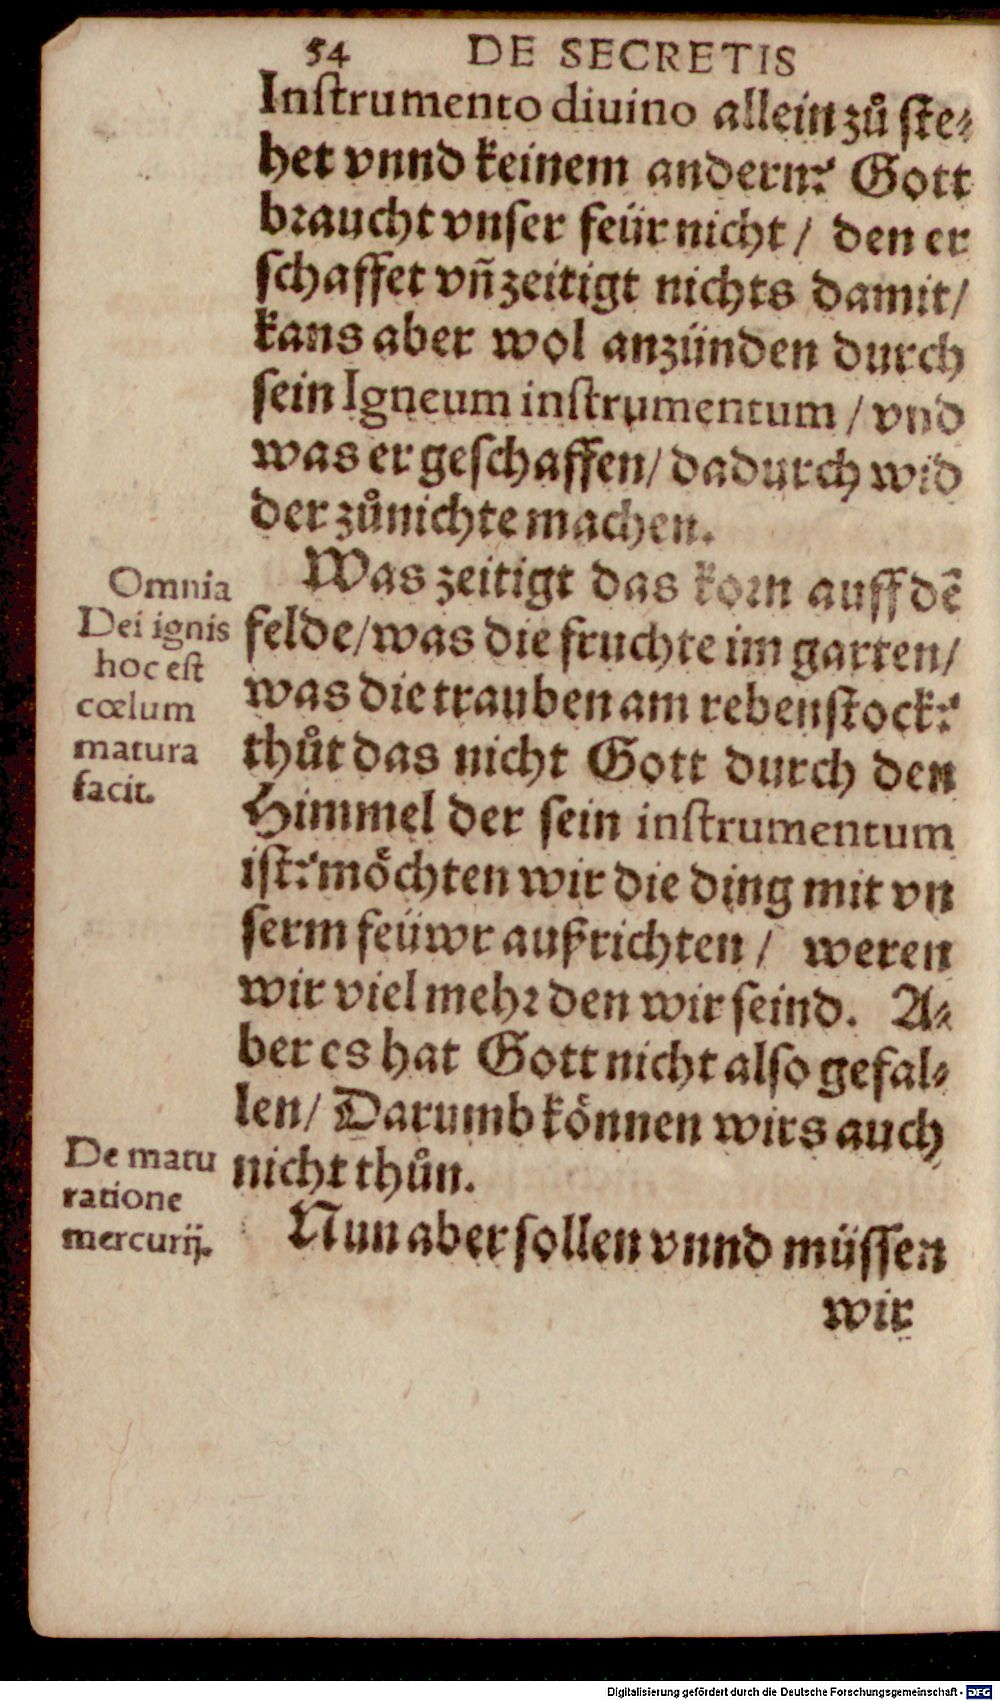 54 DE SECRETIS
Inſtrumento diuino allein zů ſte⸗
het vnnd keinem andern? Gott
braucht vnſer feür nicht / den er
ſchaffet vñ zeitigt nichts damit /
kans aber wol anzünden durch
ſein Igneum inſtrumentum / vnd
was er geſchaffen / dadurch wid
der zůnichte machen.
Was zeitigt das korn auff dē
Omnia
Dei ignis
hoc eſt
cœlum
matura
facit.
felde / was die fruchte im garten /
was die trauben am rebenſtock?
thůt das nicht Gott durch den
Himmel der ſein inſtrumentum
iſt? möchten wir die ding mit vn
ſerm feüwr außrichten / weren
wir viel mehr den wir ſeind. A⸗
ber es hat Gott nicht alſo gefal⸗
len / Darumb können wirs auch
nicht thůn.
De matu
ratione
mercurij.
Nun aber ſollen vnnd müſſen
wir
Digitalisierung gefördert durch die Deutsche Forschungsgemeinschaft - DFG